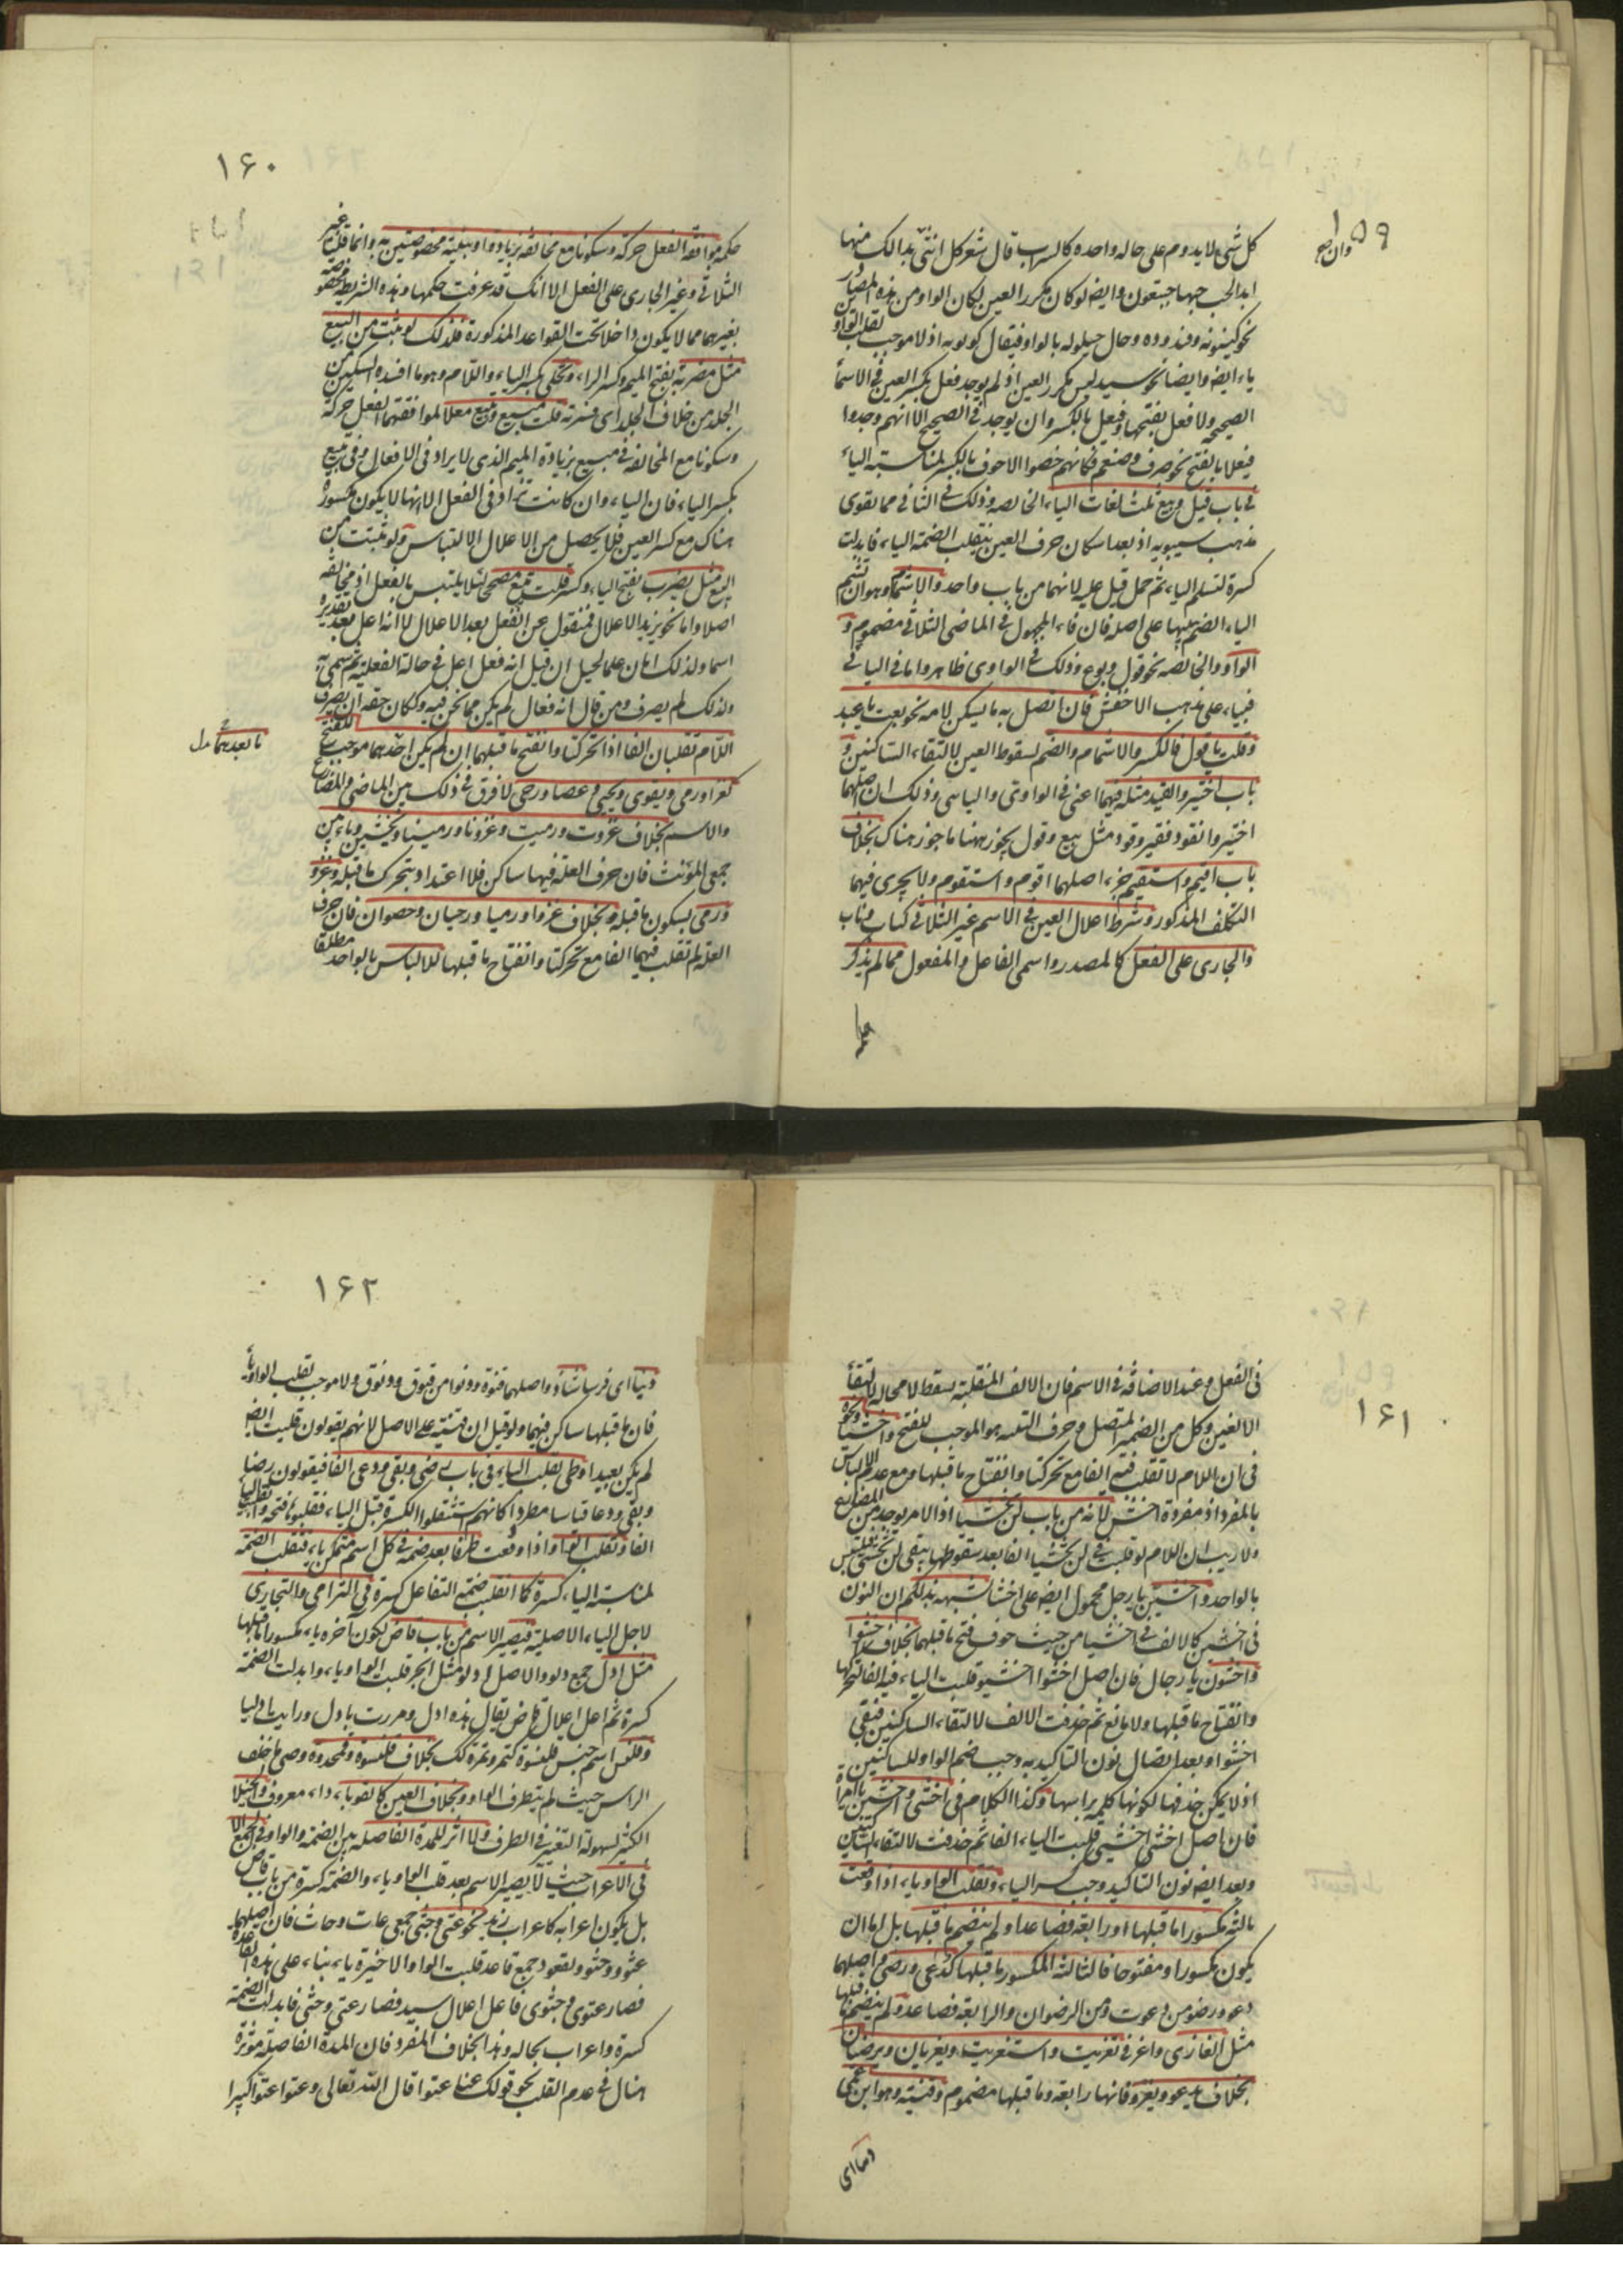 ١٥٩
كل شئ لا يدوم على حاله واحده كالسراب قال شعر كل انثى وان بدا لك منها
اية الحب حبها خيتعور وايضا لو كان مكرر العين لكان الواو من هذه المصادر
نحو كينونه وقيدوده وحال حيلوله بالواو فيقال كونونه اذ لا موجب لقلب الواو
ياء ايضا وايضا نحو سيد ليس مكرر العين اذ لم يوجد فعل بكسر العين في الاسماء
الصحيحه ولا فعل بفتحها وفيعل بالكسر وان يوجد في الصحيح الا انهم وجدوا
فيعلا بالفتح نحو صيرف وضيغم فكانهم خصوا الاجوف بالكسر لمناسبته الياء
في باب قيل وبيع ثلث لغات الياء الخالصه وذلك في الثاني مما يقوى
مذهب سيبويه اذ بعد اسكان حرف العين ينقلب الضمة الياء فابدلت
كسرة لتسلم الياء ثم حمل قيل عليه لانهما من باب واحد والاشمام وهو ان تشم
الياء الضم تنبيها على اصله فان فاء المجهول في الماضى الثلاثي مضموم و
الواو والخالصه نحو قول وبوع وذلك في الواوى ظاهر واما في اليائي
فبناء على مذهب الاخفش فان اتصل به ما يسكن لامه نحو بعت يا عبد
وقلت يا قول فالكسر والاشمام والضم لسقوط العين لالتقاء الساكنين و
باب اختير وانقيد مثله فيها اعنى في الواوى واليايى وذلك ان اصلهما
اختير وانقود فقير وقود مثل بيع وقول يجوز ههنا ما جوز هناك بخلاف
باب اقيم واستقيم خبر اصلهما اقوم واستقوم ولا يجرى فيهما
التكلف المذكور وشرط اعلال العين في الاسم غير الثلاثي كباب وناب
والجارى على الفعل كالمصدر واسمى الفاعل والمفعول مما لم يذكر
١۶٠
حكمه موافقة الفعل حركة وسكونا مع مخالفة بزيادة او ببنية مخصوصتين به وانما قلنا غير
الثلاثي وغير الجارى على الفعل الا انك قد عرفت حكمها وهذه الشريطة مخصوصة
بغيرهما مما لا يكون داخلا تحت القواعد المذكورة فلذلك لو بنيت من البيع
مثل مضربة بفتح الميم وكسر الراء وتحلئ بكسر التاء واللام وهو ما افسده السكين من
الجلد من خلاف الجلد اى قشرته قلت مبيع وتبيع معلا لموافقتهما الفعل حركة
وسكونا مع المخالفه في مبيع بزيادة الميم الذى لا يراد في الافعال وفى تبيع
بكسر التاء فان التاء وان كانت تزاد في الفعل الا انها لا يكون مكسورة
هناك مع كسر العين فلا يحصل من الاعلال الالتباس ولو بنيت من
البيع مثل يضرب بفتح الياء وكسر قلت يبيع مصححا لئلا يلتبس بالفعل اذ لا مخالفة
اصلا واما نحو يزيد الاعلال فمنقول عن الفعل بعد الاعلال لا انه اعل بعد تقديره
اسما ولذلك ابان علما لجبل ان قيل انه فعل اعل في حالة الفعلية ثم سمى به
ولذلك لم يصرف ومن قال انه فعال لم يكن مما نحن فيه وكان حقه ان يصرف
اللام تقلبان الفا اذا تحركتا وانفتح ما قبلهما ان لم يكن بعدهما موجب للفتح
كغزا ورمى ويقوى ويحيى وعصا ورحى لا فرق في ذلك بين الماضى والمضارع
والاسم بخلاف غزوت ورميت وغزونا ورمينا ويخشين ويابين
جمعى المؤنث فان حرف العلة فيها ساكن فلا اعتداد بتحرك ما قبله وغزو
ورمى بسكون ما قبله وبخلاف غزوا ورميا ورحيان وعصوان فان حرف
العله لم تقلب فيها الفا مع تحركتا وانفتاح ما قبلها للالباس بالواحد مطلقا
ما بعدهما
١۶١
في الفعل وعند الاضافة في الاسم فان الالف المنقلبة يسقط لا محاله لالتقاء
الالفين وكل من الضمير المتصل وحرف التثنيه هو الموجب للفتح واخشيا ونحوه
في ان اللام لا تقلب فيه الفا مع تحركتا وانفتاح ما قبلها ومع عدم الالباس
بالمفرد اذ مفرده اخش لانه من باب لن يخشيا اذ الامر يوجد من المضارع
ولا ريب ان اللام لو قلبت في لن يخشيا الفا بعد سقوطها يبقى لن يخشى فيلتبس
بالواحد واخشين يا رجل محمول ايضا على اخشيا شبهه بذلك لان النون
في اخشين كالالف في اخشيا من حيث خوف فتح ما قبلهما بخلاف اخشوا
واخشون يا رجال فان اصل اخشوا اخشيوا قلبت الياء فيه الفا لتحركها
وانفتاح ما قبلها ولا مانع ثم حذفت الالف لالتقاء الساكنين فبقى
اخشوا وبعد اتصال نون التاكيد به وجب ضم الواو للساكنين
اذ لا يمكن حذفها لكونها كلمة براسها وكذا الكلام في اخشى واخشين يا امراة
فان اصل اخشى اخشيى قلبت الياء الفا ثم حذفت لالتقاء الساكنين
وبعد ايضا نون التاكيد وجب كسر الياء وتقلب الواو ياء اذا وقعت
ثالثة مكسورا ما قبلها او رابعة فصاعدا ولم ينضم ما قبلها بل اما ان
يكون مكسورا او مفتوحا فالثالثة المكسور ما قبلها كدعى ورضى اصلهما
دعو ورضو من دعوت ومن الرضوان والرابعة فصاعدا ولم ينضم ما قبلها
مثل الغازى واغزيت وتغزيت واستغزيت ويغزيان ويرضيان
بخلاف يدعو ويغزو فانها رابعة وما قبلها مضموم وقنية وهو ابن عمى
دنيا اى
١۶٢
دنيا اى فرسا شاذ واصلهما قنوة ودنوا من قنوت ودنوت ولا موجب لقلب الواو ياء
فان ما قبلها ساكن فيهما ولو قيل ان قنية على الاصل لانهم يقولون قنيت ايضا
لم يكن بعيدا وطى تقلب الياء في باب رضى وبقى ودعى الفا فيقولون رضا
وبقى ودعا قياسا مطردا كانهم استثقلوا الكسرة قبل الياء فقلبوها فتحة والياء
الفا وتقلب الواو اذا وقعت طرفا بعد ضمة في كل اسم متمكن ياء فتقلب الضمة
لمناسبة الياء كسرة كما انقلب ضمة التفاعل كسرة في الترامى والتجارى
لاجل الياء الاصلية فيصير الاسم من باب قاض لكون آخره ياء مكسورا ما قبلها
مثل ادل جمع دلو والاصل ادلو مثل ابحر قلبت الواو ياء وابدلت الضمة
كسرة ثم اعل اعلال قاض يقال هذه ادل ومررت بادل ورايت ادليا
وقلنس اسم جنس قلنسوة كتمر وتمرة لك بخلاف قلنسوة وقمحدوة وهى ما خلف
الراس حيث لم يتطرف الواو وبخلاف العين كالقوباء داء معروف والخيلاء
الكثير لسهولة التغير في الطرف ولا اثر للمدة الفاصلة بين الضمة والواو في الجمع الا
في الاعراب حيث لا يصير الاسم بعد قلب الواو ياء والضمة كسرة من باب قاض
بل يكون اعرابه كاعراب زيد نحو عتى وجثى جمعى عات وجاث فان اصلهما
عتوو وجثوو ولقعود جمع قاعد قلبت الواو الاخيرة ياء بناء على هذه القاعدة
فصار عتوى وجثوى فاعل اعلال سيد فصار عتى وجثى فابدلت الضمة
كسرة واعراب بحاله وهذا بخلاف المفرد فان المدة الفاصلة مؤثرة
هناك في عدم القلب نحو قولك عتا عتوا قال الله تعالى وعتوا عتوا كبيرا